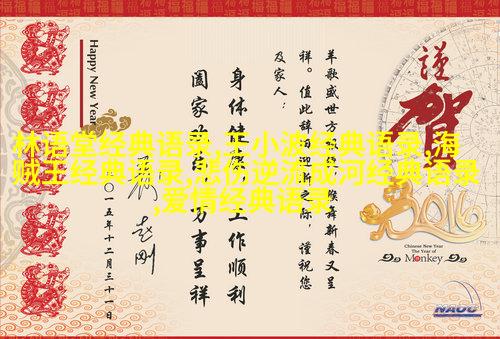 林语堂经典语录,王小波经典语录,海
贼王经典语录,悲伤逆流成河经典语录
,爱情经典语录
謹
賀
2016
Chinese New Year
The Year of
Monkey
NAOC
羊歌盛世方 猴舞新春又呈
祥。值此辞旧迎新之际,谨祝您
及家人:
身体健康,工作顺利
阖家幸福,万事呈祥
一五年十二月三十一日
Happy New Year